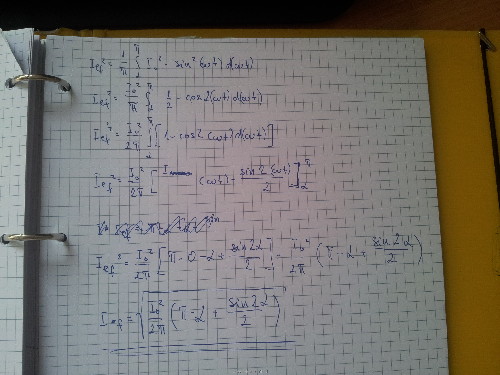 Ief² = 1/π ∫_α^π I₀² · sin²(ωt) d(ωt)
Ief² = I₀²/π ∫_α^π 1/2 - cos2(ωt) d(ωt)
Ief² = I₀²/2π ∫_α^π [1 - cos2(ωt) d(ωt)]
Ief² = I₀²/2π [ (ωt) - sin2(ωt)/2 ]_α^π
Ief² = I₀²/2π [π - 0 - α + sin2α/2] = I₀²/2π (π - α + sin2α/2)
Ief = √(I₀²/2π (π - α + sin2α/2))